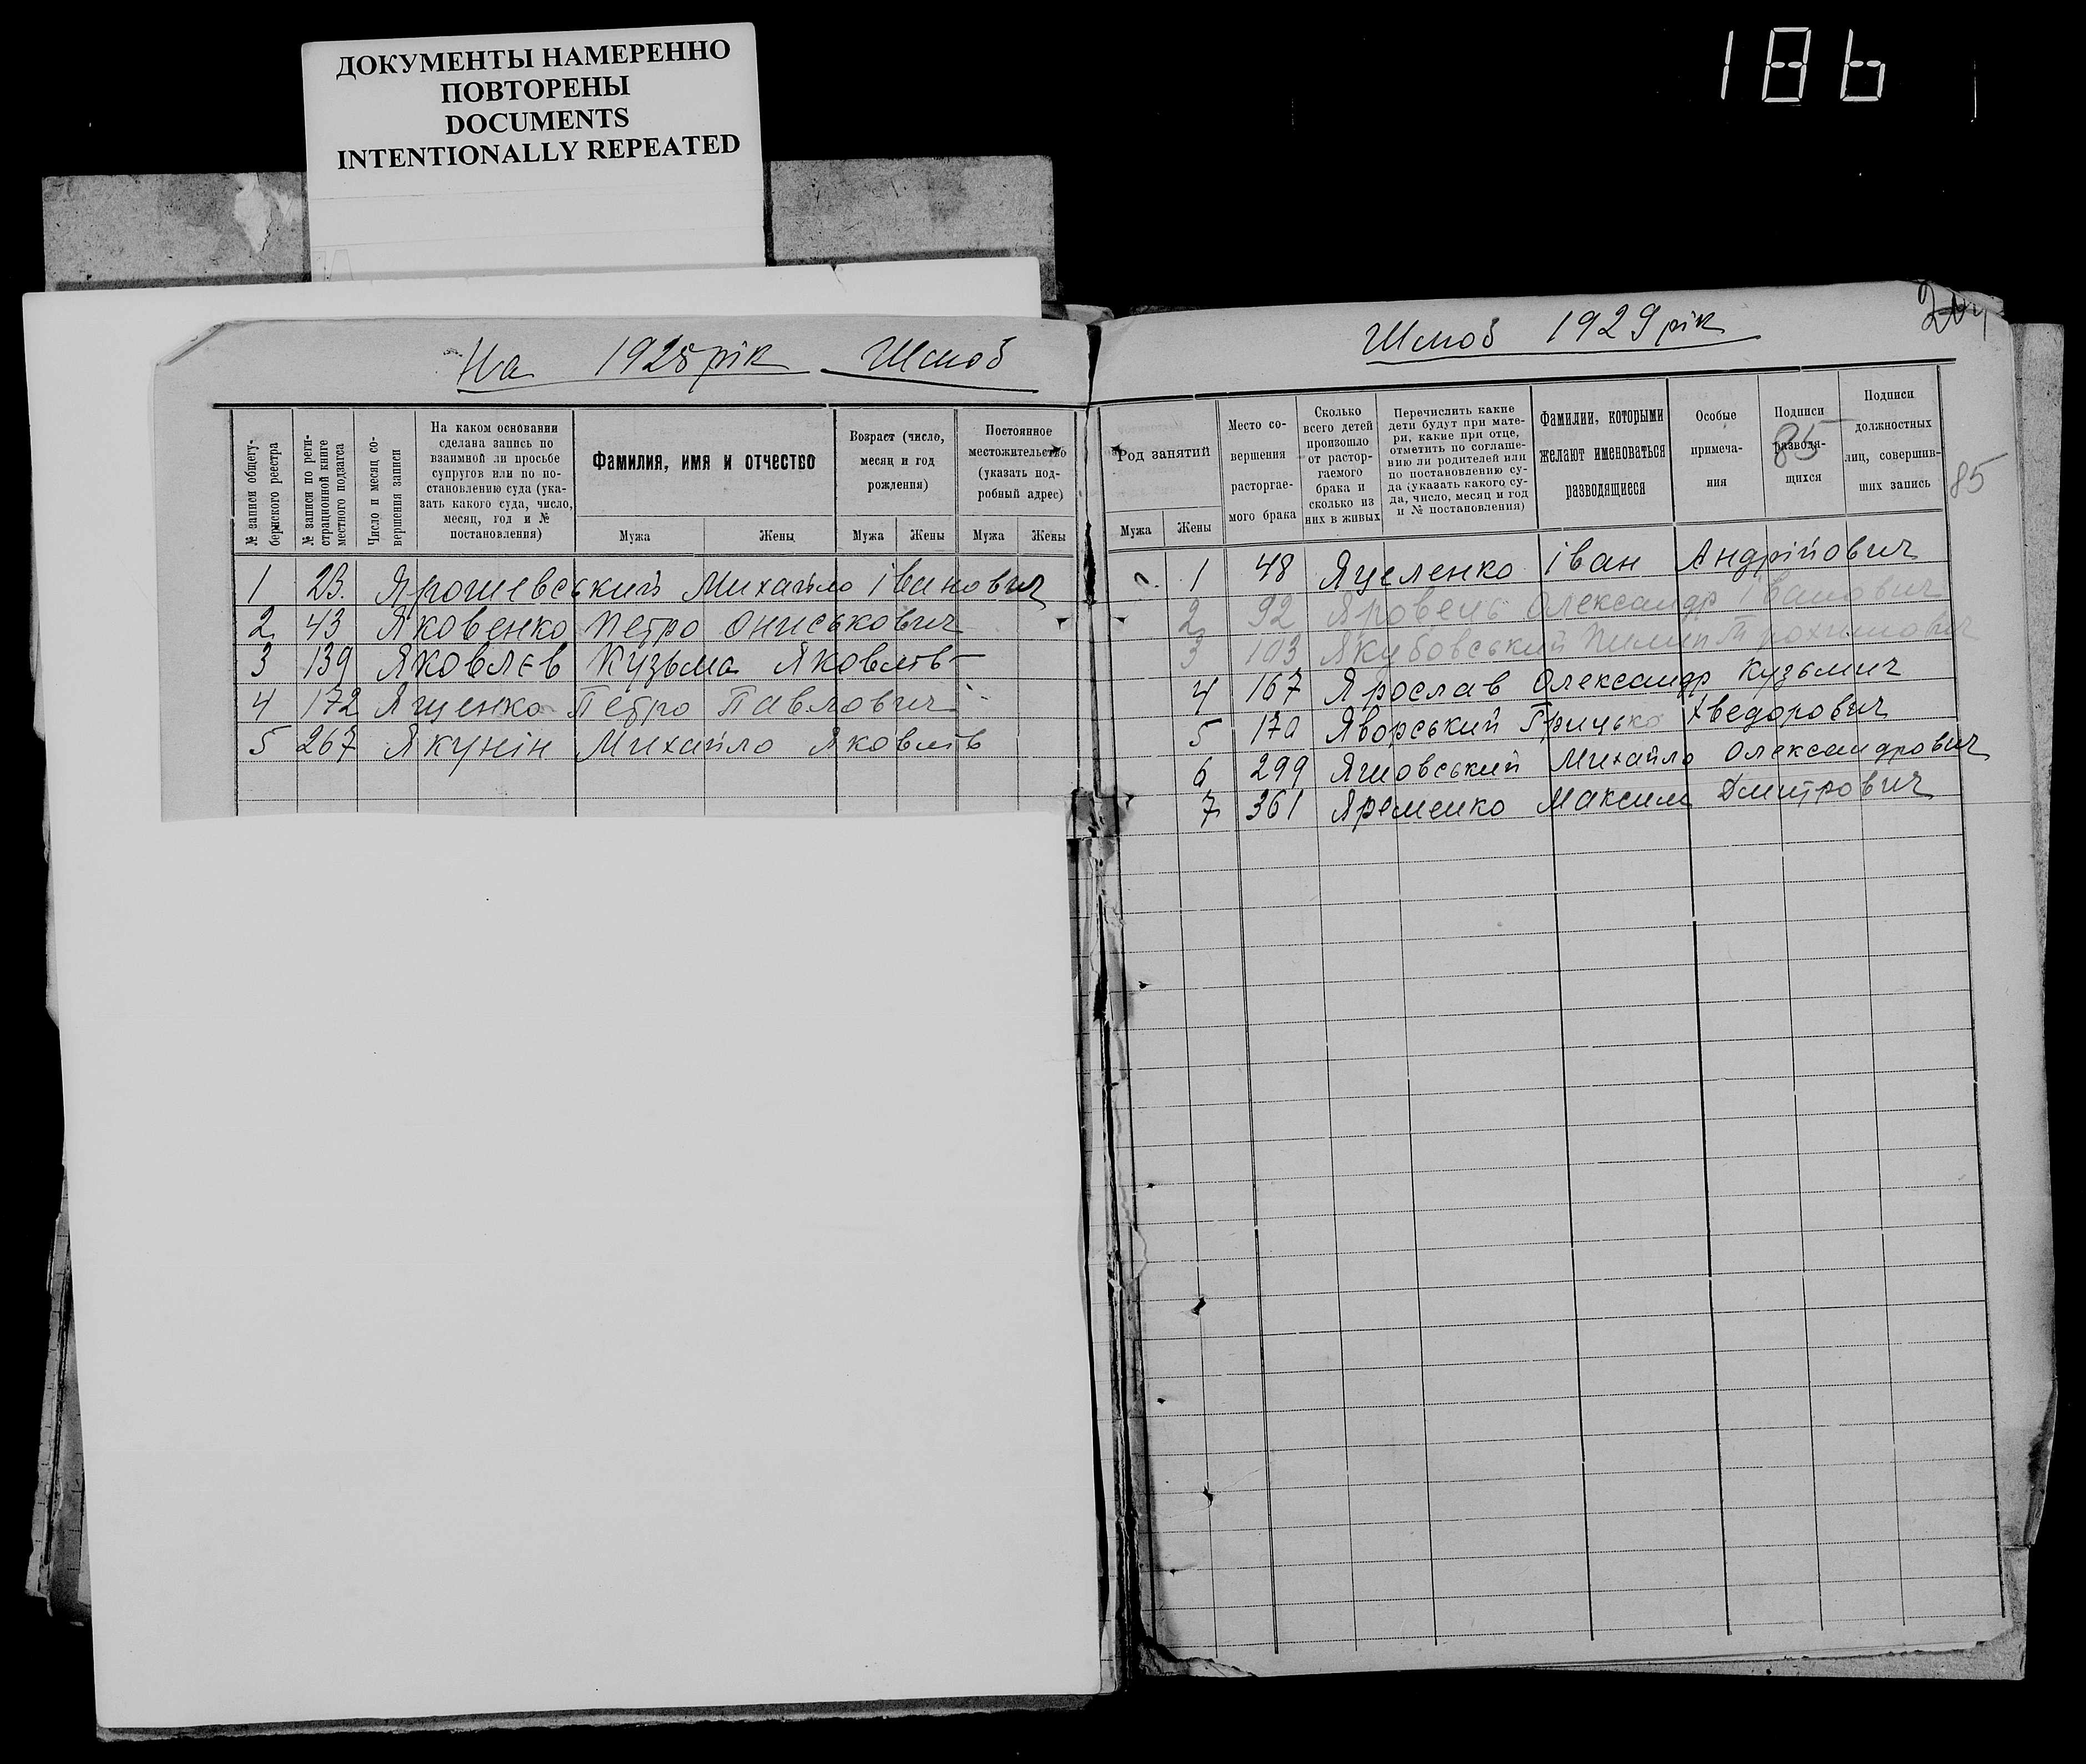 ДОКУМЕНТЫ НАМЕРЕННО
ПОВТОРЕНЫ
DOCUMENTS
INTENTIONALLY REPEATED
186
На 1928 рік Шлюб
№ записи общегу-
бернского реестра
№ записи по реги-
страционной книге
местного подзагса
Число и месяц со-
вершения записи
На каком основании
сделана запись по
взаимной ли просьбе
супругов или по по-
становлению суда (ука-
зать какого суда, число,
месяц, год и №
постановления)
Фамилия, имя и отчество
Мужа Жены
Возраст (число,
месяц и год
рождения)
Мужа Жены
Постоянное
местожительство
(указать под-
робный адрес)
Мужа Жены
1 23. Ярошевський Михайло Іванович
2 43 Яковенко ПетроОниськович
3 139 Яковлєв Кузьма Яковлів
4 172 Ященко Петро Павлович
5 267 Якунін Михайло Яковлів
Шлюб 1929 рік
Род занятий
Мужа Жены
Место со-
вершения
расторгае-
мого брака
Сколько
всего детей
произошло
от растор-
гаемого
брака и
сколько из
них в живых
Перечислить какие
дети будут при мате-
ри, какие при отце,
отметить по соглаше-
нию ли родителей или
по постановлению су-
да (указать какого су-
да, число, месяц и год
и № постановления)
Фамилии, которыми
желают именоваться
разводящиеся
Особые
примеча-
ния
Подписи
разводя-
щихся
85
Подписи
должностных
лиц, совершив-
ших запись
85
1 48 Яцеленко Іван Андрійович
2 92 Яровець Олександр Іванович
3 103 Якубовський Пилип Трохимович
4 167 Ярослав Олександр Кузьмич
5 170 Яворський Грицько Хведорович
6 299 Яшовський Михайло Олександрович
7 361 Яременко Максим Дмитрович